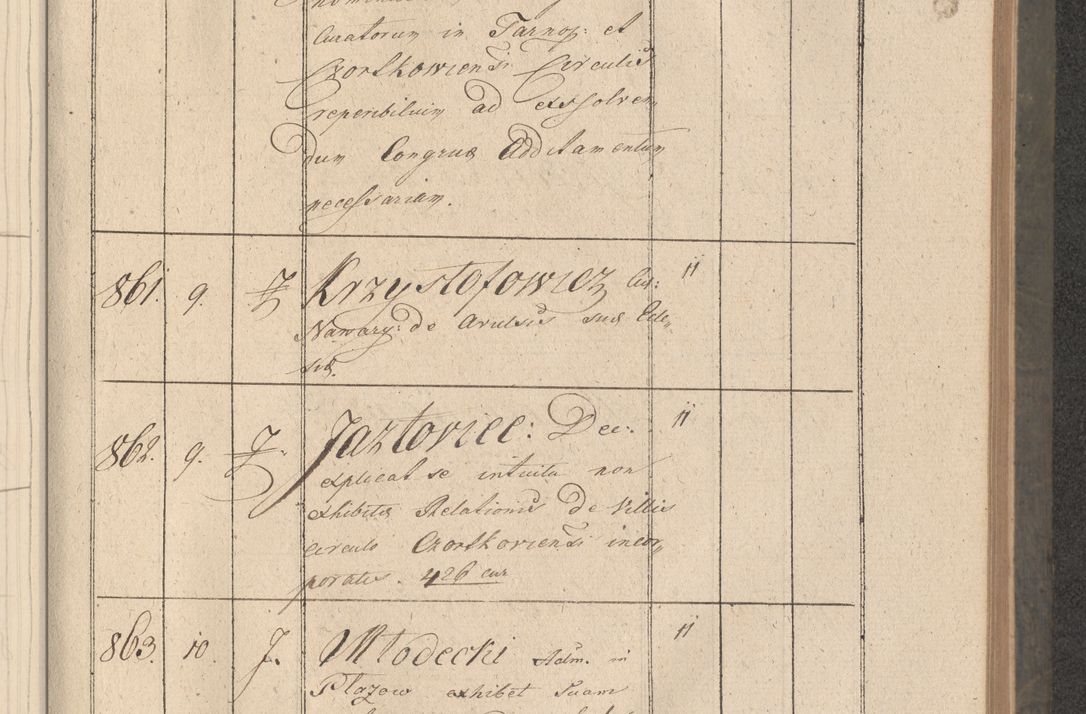 Curatorum in Tarnop: et
Czortkowiensi Circulis
reperibilium ad exsolven
dum Congruae Additamentum
necessariam.
861. 9. Krzysztofowicz Cur: 11
Nawary: de Avulsis suae Eccle
siae.
862. 9. J. Jazlovice: Dec: 11
explicat se intuitu non
exhibitae Relationis de Villis
circulo Czortkoviensi incor
poratis. 426 cur
863. 10. J. Młodecki Adm. in 11
Płazow exhibet suam